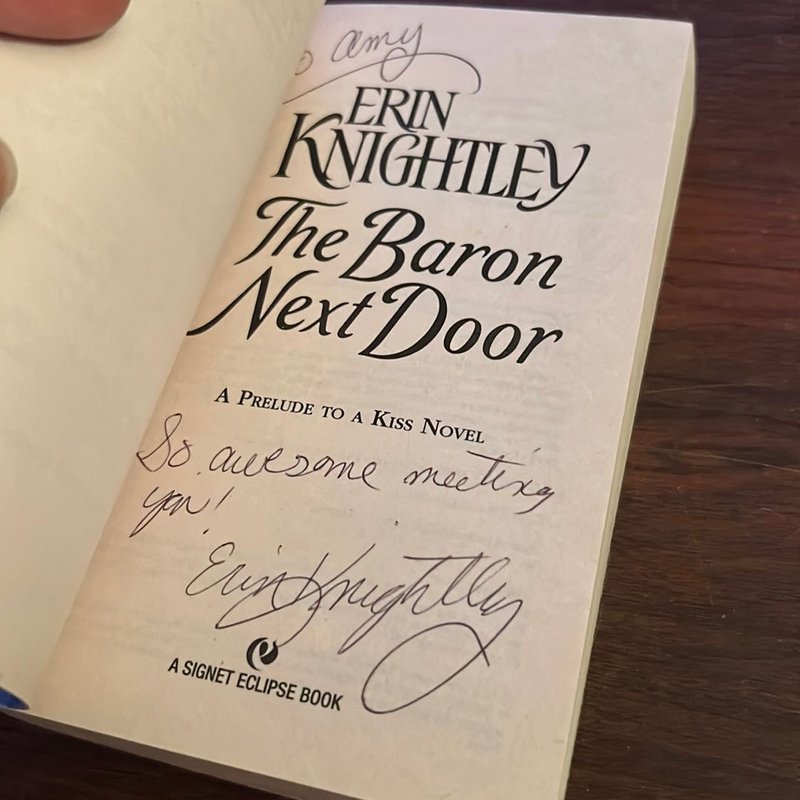 o amy
ERIN
KNIGHTLEY
The Baron
Next Door
A PRELUDE TO A KISS NOVEL
So awesome meeting
you!
Erin Knightley
A SIGNET ECLIPSE BOOK